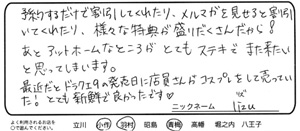 予約するだけで割引してくれたり、メルマガを見せると割引
いてくれたり、様々な特典が盛りだくさんだから!
あとアットホームなところがとてもステキでまた来たい
と思ってしまいます。
最近だとドラクエ9の発売日に店員さんがコスプレをして売ってい
た!とても新鮮で良かったです♡
ニックネーム lizu
よく利用されるお店を
○で囲んでください。
立川 小作 羽村 昭島 青梅 高幡 堀之内 八王子